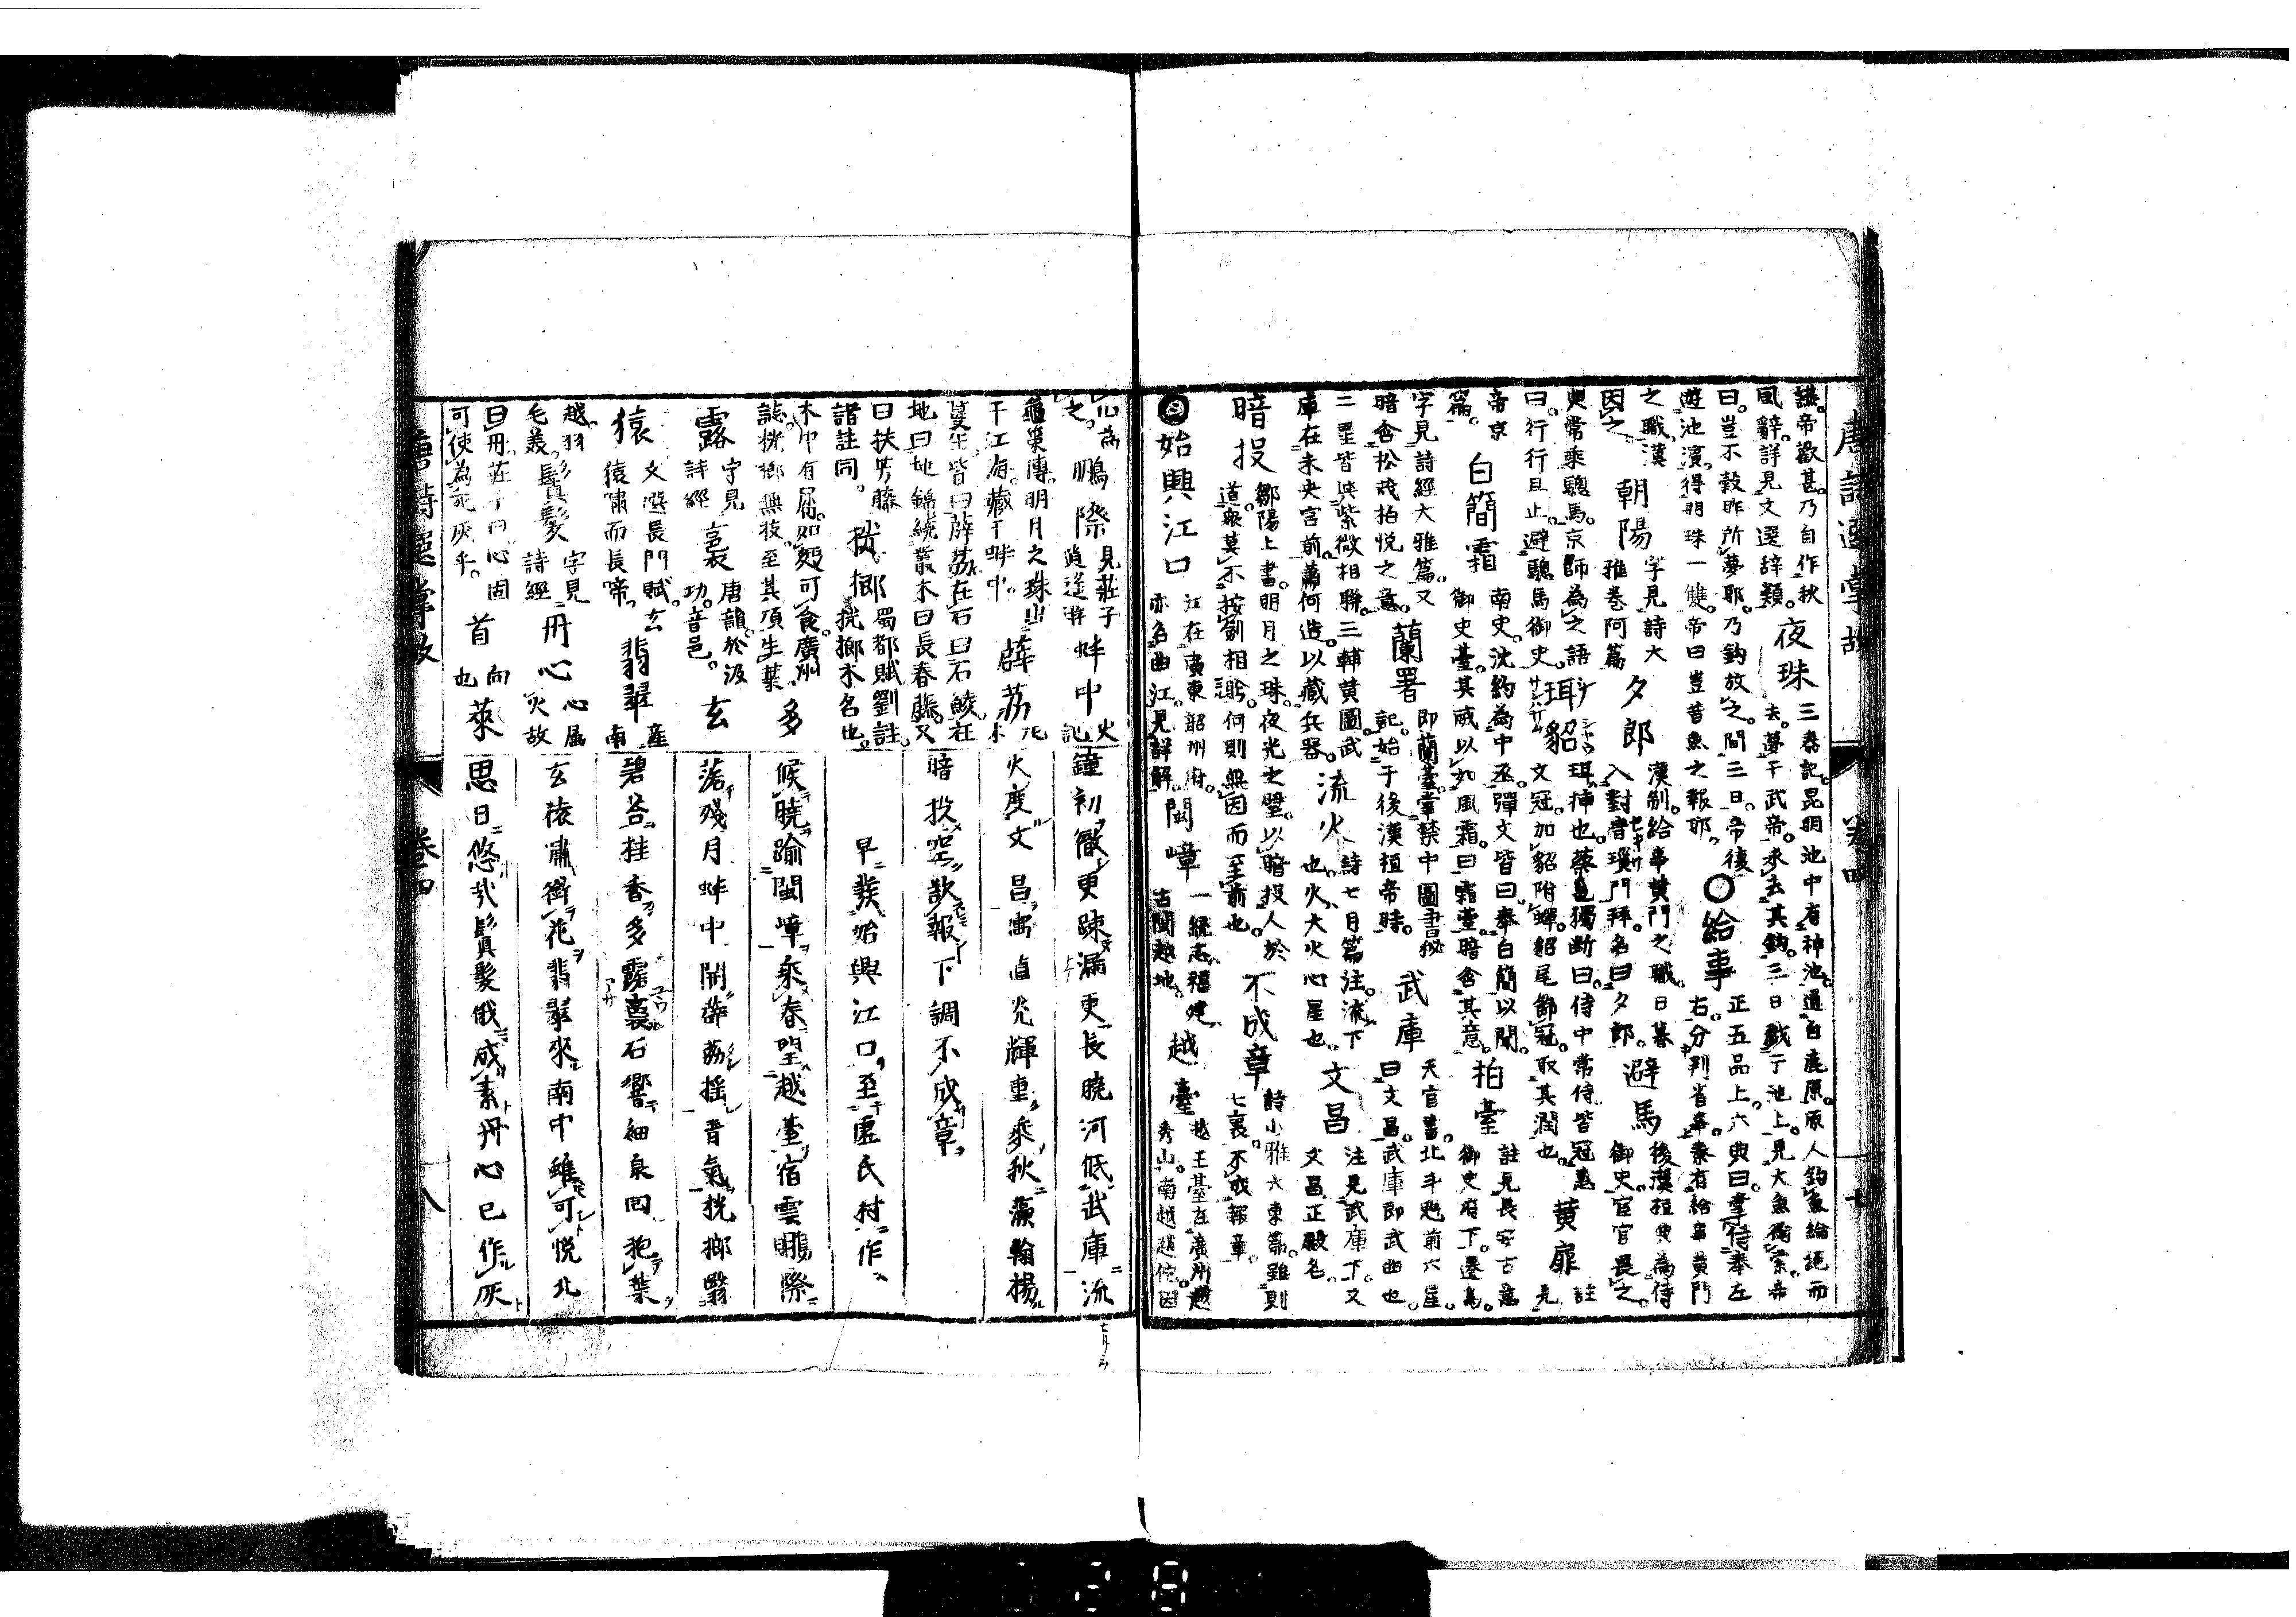 唐詩選掌故
卷四
七
讌。帝歡甚。乃自作秋
風辭。詳見文選辭類。
夜珠
三秦記。昆明池中有神池。通白鹿原。原人釣魚綸絶而
去。夢于武帝。求去其鉤。三日戲于池上。見大魚銜索。帝
曰。豈不穀昨所夢耶。乃鉤放之。間三日。帝復
遊池濱。得明珠一雙。帝曰豈昔魚之報耶。
○給事
正五品上。六典曰。掌侍奉左
右。分判省事。秦有給事黄門
之職。漢
因之
朝陽
字見詩大
雅卷阿篇
夕郎
漢制。給事黄門之職。日暮
入對青瑣門拜。名曰夕郎。
避馬
後漢桓典為侍
御史。宦官畏之。
典常乘驄馬。京師為之語
曰。行行且止。避驄馬御史。
珥貂
珥。挿也。蔡邕獨斷曰。侍中常侍皆冠惠
文冠。加貂附蟬。貂尾飾冠。取其潤也。
黄扉
註
見
帝京
篇。
白簡霜
南史。沈約為中丞。彈文皆曰。奉白簡以聞。
御史臺。其威以如風霜。曰霜臺。暗含其意。
柏臺
註見長安古意
御史府下。
字見詩經大雅篇。又
暗含松茂柏悦之意。
蘭署
即蘭臺。掌禁中圖書秘
記。始于後漢桓帝時。
武庫
天官書。北斗魁前六星。
曰文昌。武庫即武曲也。
二星皆與紫微相聯。三輔黄圖。武
庫在未央宮前。蕭何造。以藏兵器。
流火
詩七月篇注。流下
也。火。大火心星也。
文昌
注見武庫下。又
文昌正殿名。
暗投
鄒陽上書。明月之珠。夜光之璧。以暗投人於
道。衆莫不按劍相眄。何則無因而至前也。
不成章
詩小雅大東篇。雖則
七襄。不成報章。
始興江口
江在廣東韶州府。
亦名曲江。見詳解。
閩嶂
一統志。福建
古閩越地。
越臺
越王臺在廣州越
秀山。南越趙佗因
鐘初徹更疎漏更長曉河低武庫流
火度文昌寓直光輝重乘秋藻翰揚
暗投空欲報下調不成章
早發始興江口至虛氏村作
候曉踰閩嶂乘春望越臺宿雲鵬際
落殘月蚌中開薜荔搖青氣桄榔翳
碧苔桂香多露裛石響細泉回抱葉
玄猿嘯銜花翡翠來南中雖可悦北
思日悠哉鬒髮俄成素丹心已作灰
之。
鵬際
見莊子
逍遥游
蚌中
火
記
龜筴傳。明月之珠出
于江海。藏于蚌中。
薜荔
蔓生。皆曰薜荔。在石曰石鯪。在
地曰地錦。繞叢木曰長春藤。又
曰扶芳藤
諸註同。
桄榔
蜀都賦劉註。
桄榔木名也。
木中有屑。如麪可食。廣州
誌。桄榔無枝。至其頂生葉
多
露
字見
詩經
裛
唐韻。於汲
切。音邑。
玄
猿
文選長門賦。玄
猿嘯而長啼。
翡翠
産
南
越。羽
毛美。
鬒髮
字見
詩經
丹心
心属
火故
曰丹。莊子曰。心固
可使為死灰乎。
首
向
也
萊
唐詩選掌故
卷四
八